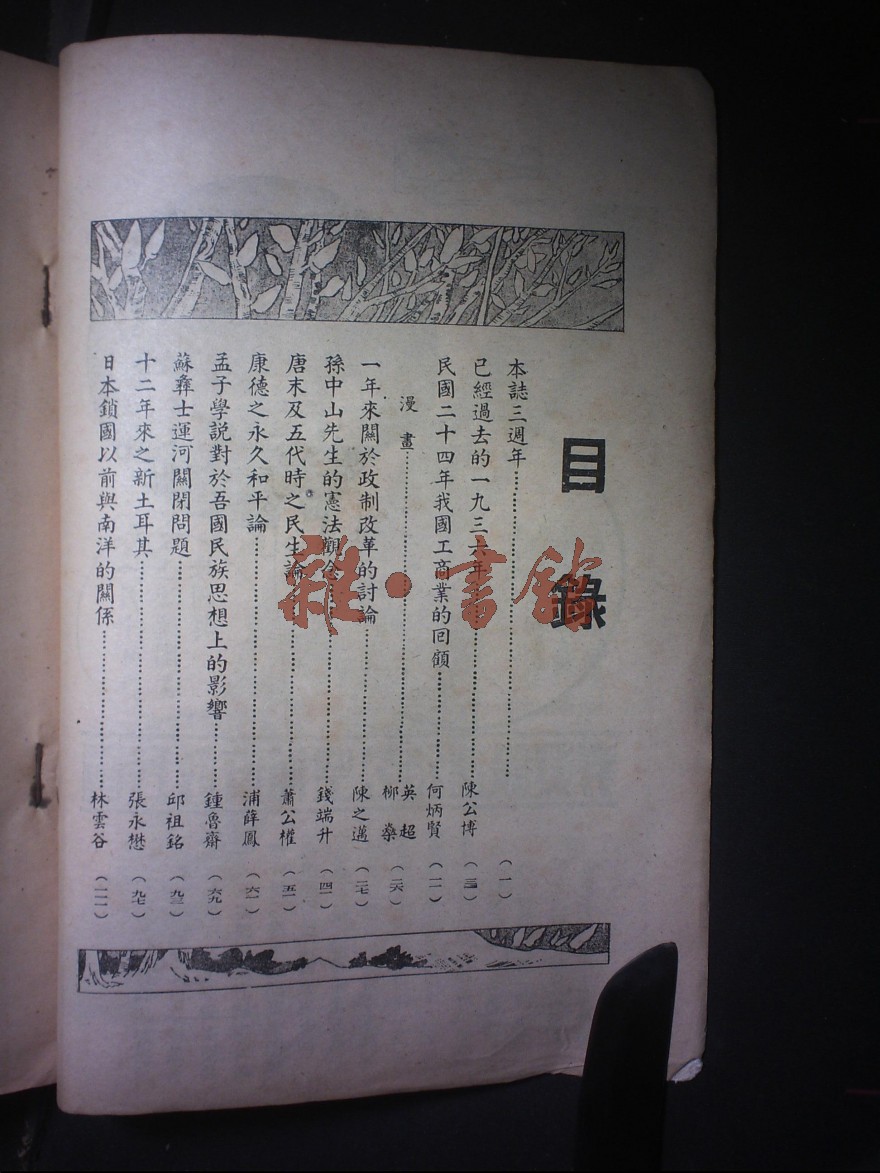 目錄
本誌三週年……(一)
已經過去的一九三六年……陳公博(三)
民國二十四年我國工商業的回顧……何炳賢(一一)
漫畫……英超 柳燊(二六)
一年來關於政制改革的討論……陳之邁(二七)
孫中山先生的憲法觀念……錢端升(四一)
唐末及五代時之民生論……蕭公權(五一)
康德之永久和平論……浦薛鳳(六一)
孟子學說對於吾國民族思想上的影響……鍾魯齋(六九)
蘇彝士運河關閉問題……邱祖銘(九三)
十二年來之新土耳其……張永懋(九七)
日本鎖國以前與南洋的關係……林雲谷(一一一)
雜·書館